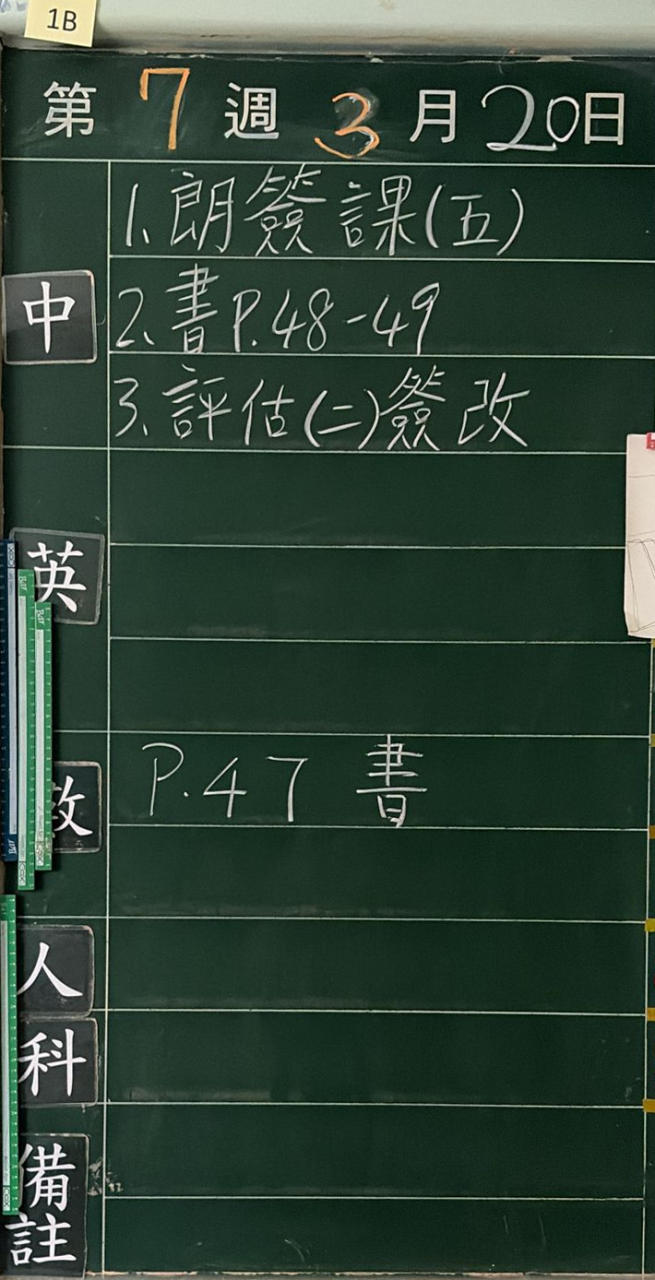 1B
第7週3月20日
中
1.朗簽課(五)
2.書P.48-49
3.評估(二)簽改
英
P.47 書
人
科
備註